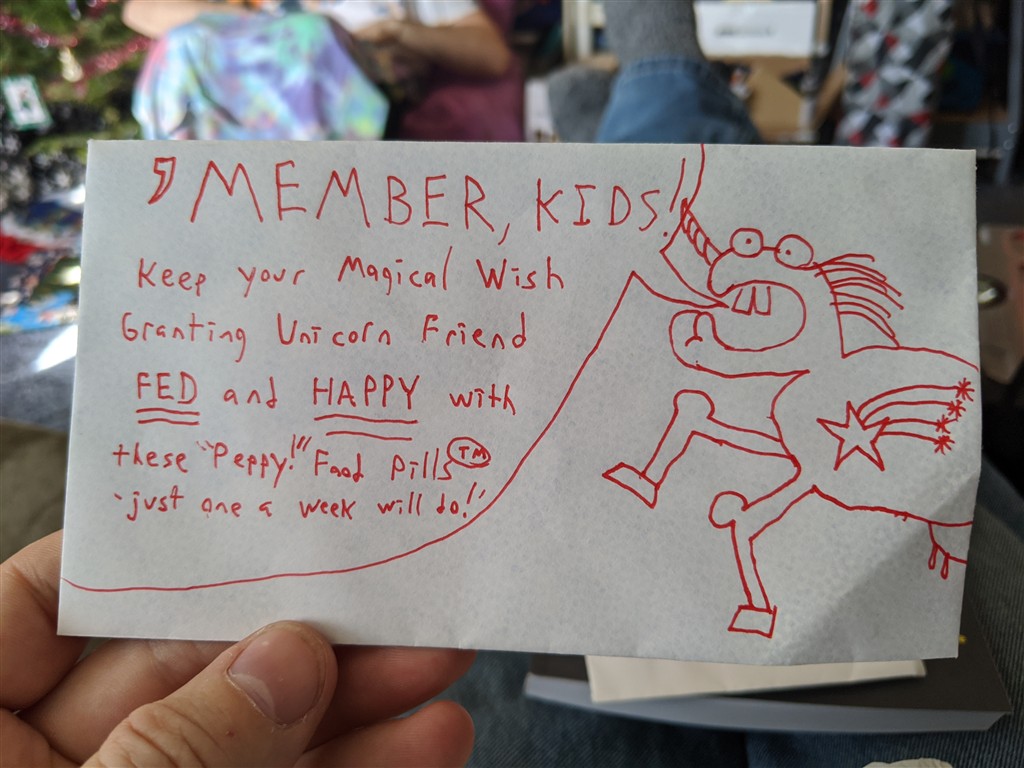 'MEMBER, KIDS!
Keep your Magical Wish
Granting Unicorn Friend
FED and HAPPY with
these "Peppy!" Food Pills TM
'just one a week will do!'